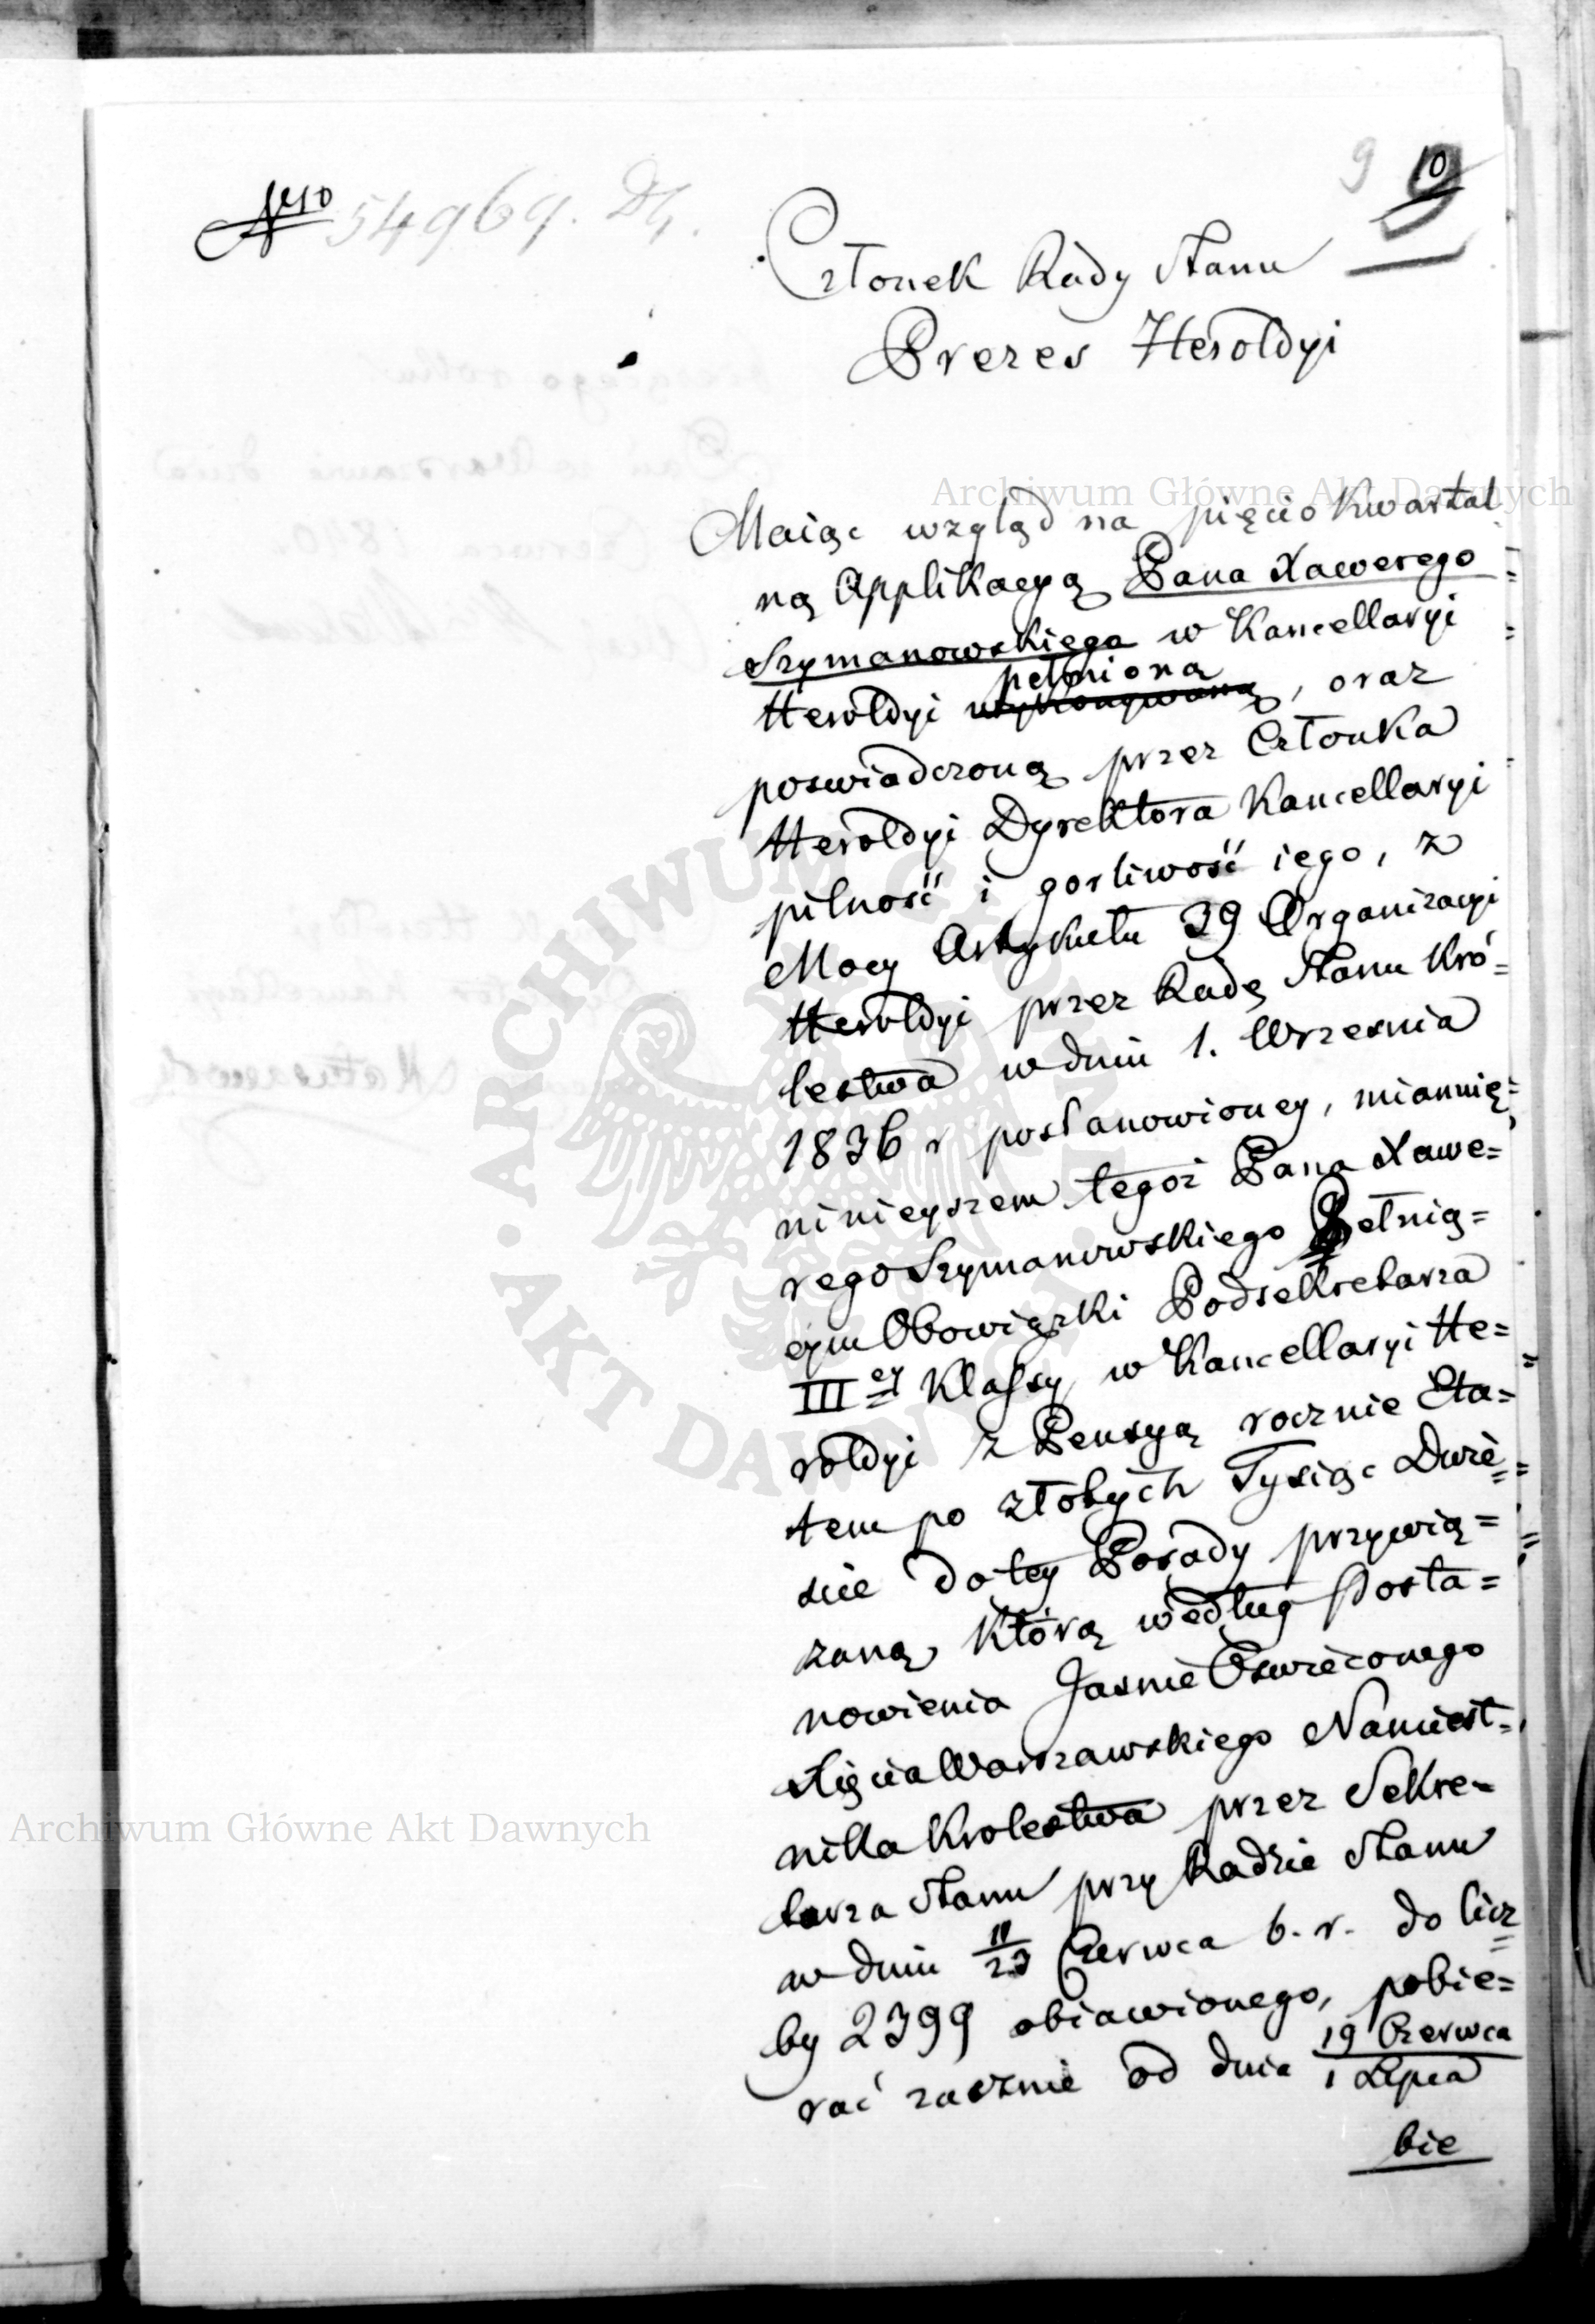 9 10
N<sup>ro</sup> 54969.
Członek Rady Stanu
Prezes Heroldyi
Maiąc wzgląd na pięcio kwartal
ną Applikacyą Pana Xawerego
Szymanowskiego w Kancellaryi
pełnioną
Heroldyi wykonywaną, oraz
poswiadczoną przez Członka
Heroldyi Dyrektora Kancellaryi
pilność i gorliwość iego, z
Mocy Artykułu 39 Organizacyi
Heroldyi przez Radę Stanu Kró=
lestwa w dniu 1. Wrzesnia
1836 r postanowioney, mianuię
ninieyszem tegoż Pana Xawe=
rego Szymanowskiego Pełnią=
cym Obowiązki Podsekretarza
III<sup>ey</sup> Klassy w Kancellaryi He=
roldyi z Pensyą rocznie Eta=
tem po złotych Tysiąc Dwie=
scie do tey Posady przywią=
zaną, którą według Posta=
nowienia Jasnie Oswieconego
Xięcia Warszawskiego Namiest=
nika Krolestwa przez Sekre=
tarza Stanu przy Radzie Stanu
w dniu 11/23 Czerwca b. r. do licz
by 2399 obiawionego, pobie=
rać zacznie od dnia 19 Czerwca
1 Lipca
bie
Archiwum Główne Akt Dawnych
Archiwum Główne Akt Dawnych
ARCHIWUM GŁÓWNE AKT DAWNYCH